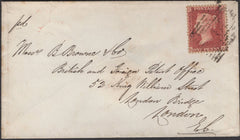 pd
Messrs B. Browne & Co.
British and Foreign Patent Office
52 King William Street
London Bridge
London
E.C.